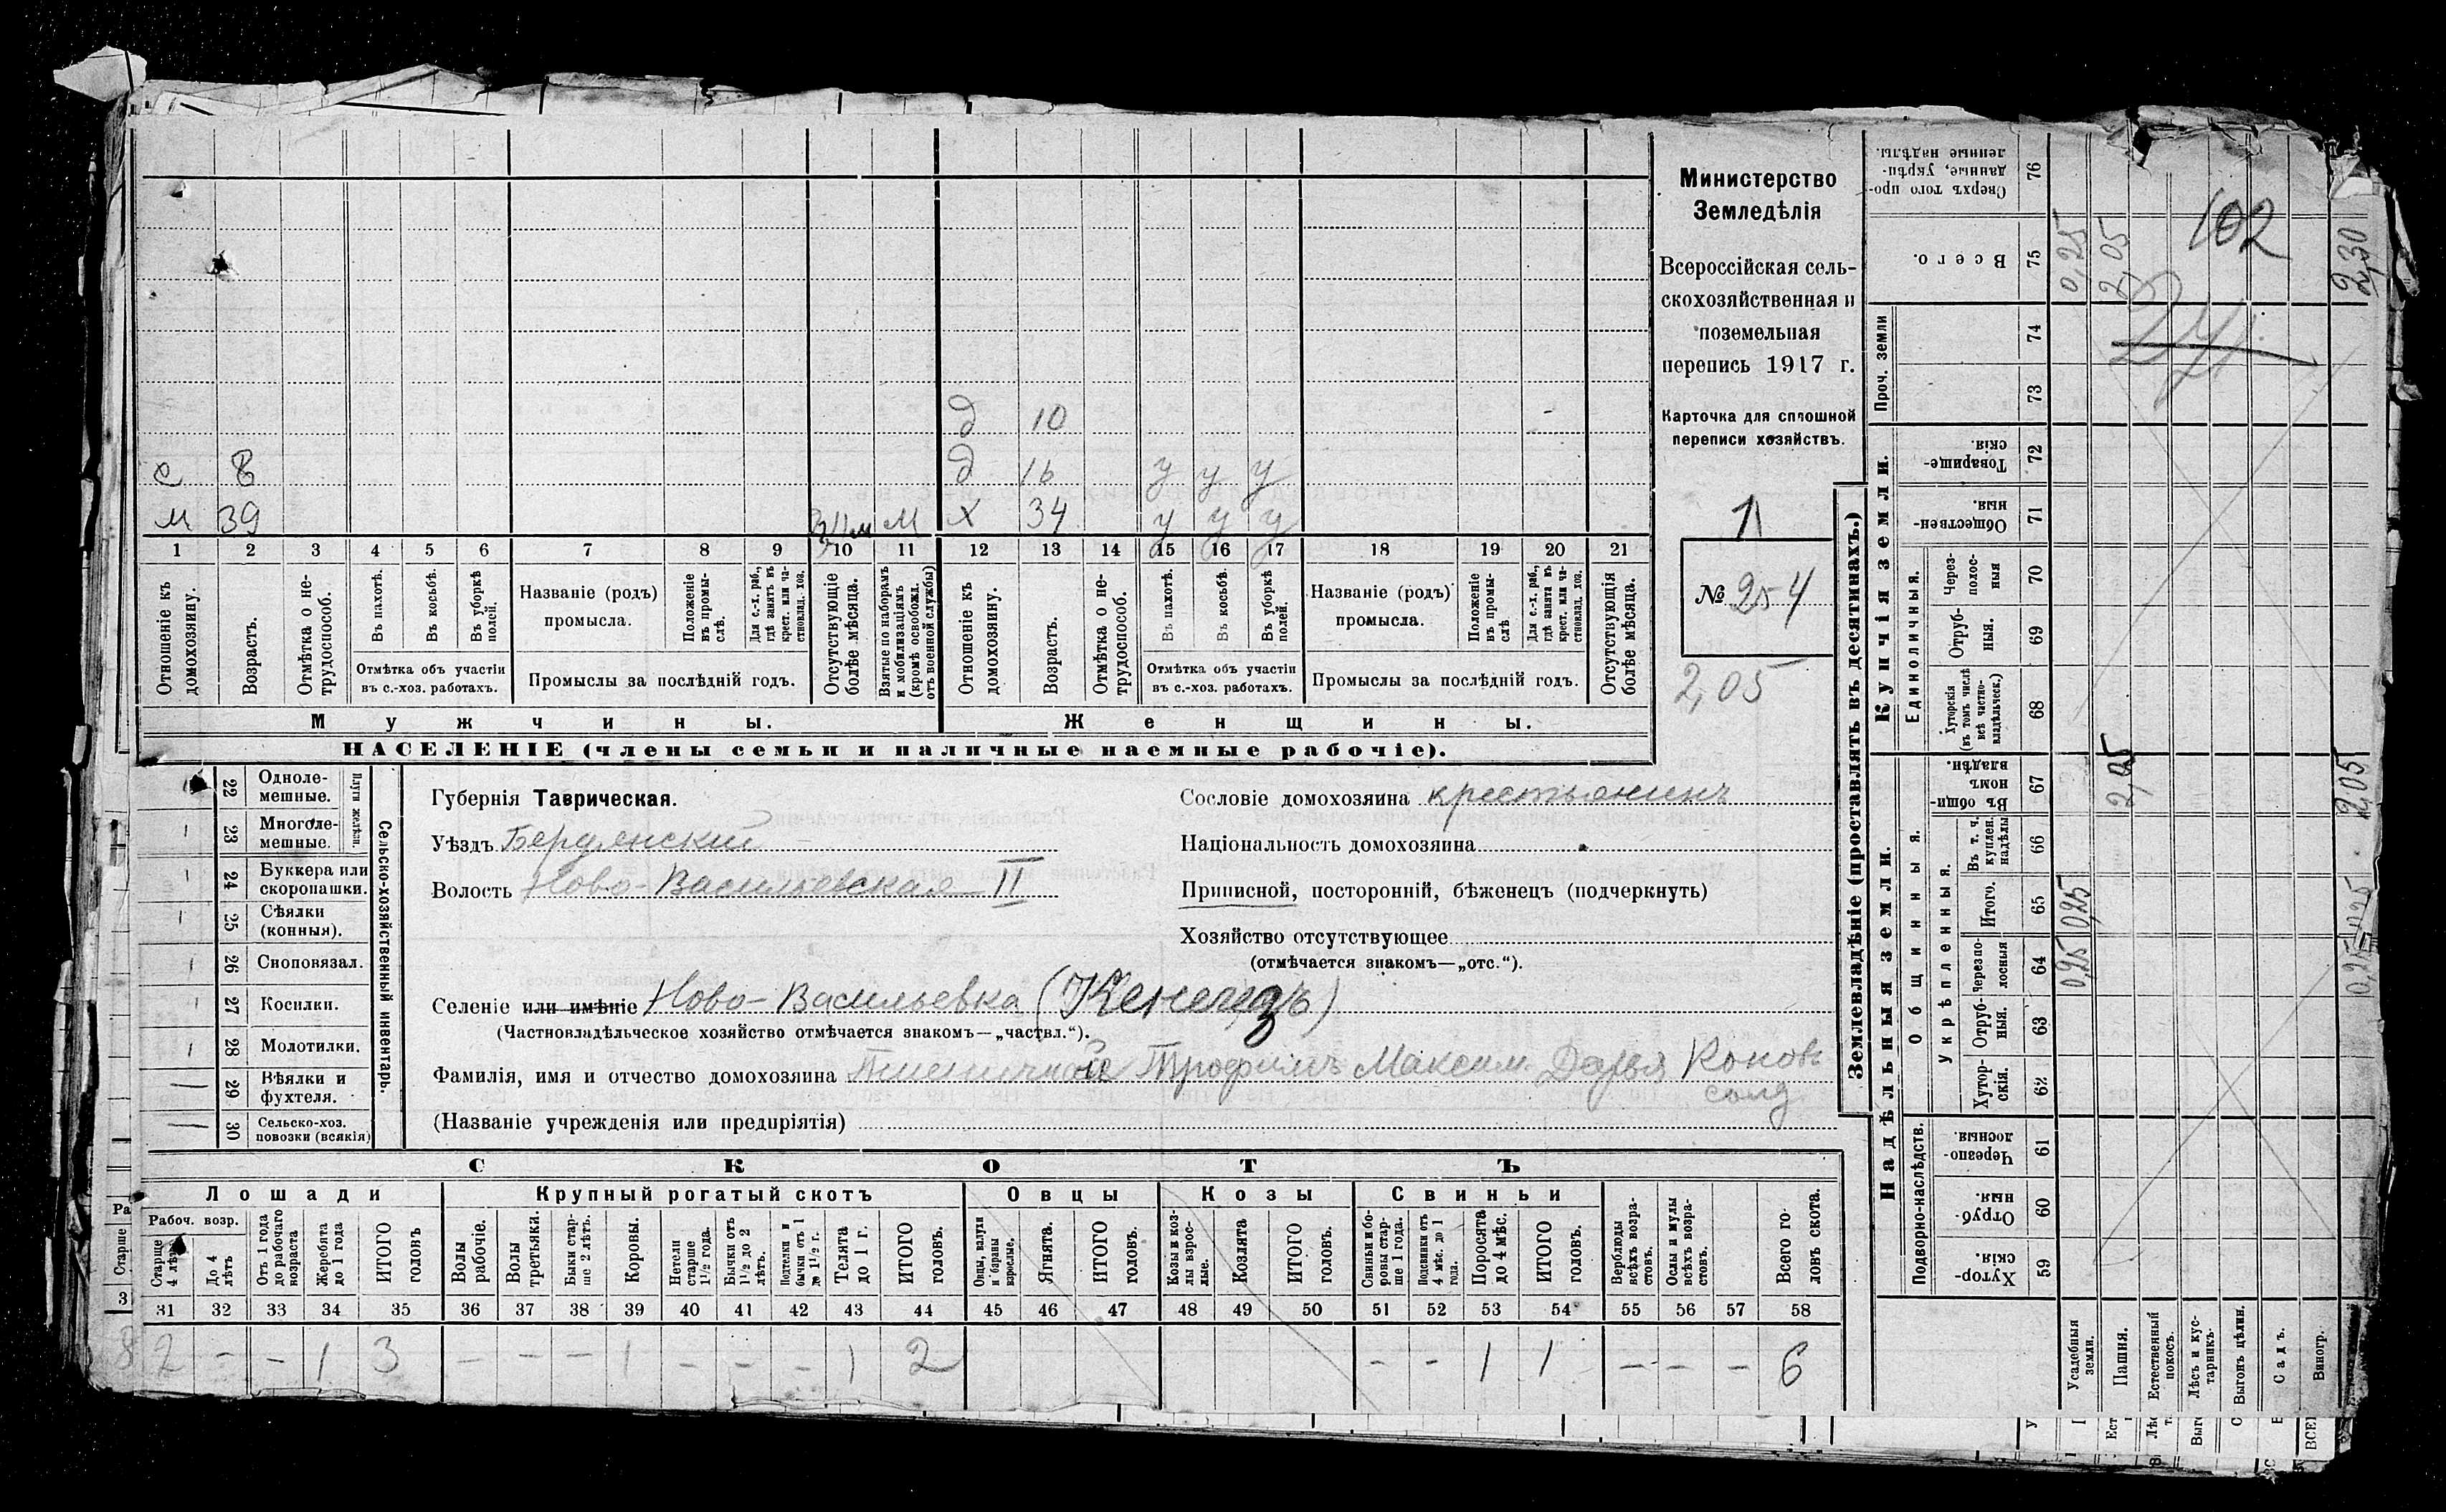 д 10
с 8 д 16 у у у
м 39 м х 34 у у у
1 2 3 4 5 6 7 8 9 10 11 12 13 14 15 16 17 18 19 20 21
Отношеніе къ домохозяину.
Возрастъ.
Отмѣтка о нетрудоспособ.
Въ пахотѣ.
Въ косьбѣ.
Въ уборкѣ полей.
Отмѣтка объ участіи
въ с.-хоз. работахъ.
Названіе (родъ)
промысла.
Положеніе въ промыслѣ.
Для с.-х. раб., гдѣ занятъ въ крест. или частновлад. хоз.
Промыслы за послѣдній годъ.
Отсутствующіе болѣе мѣсяца.
Взятые по наборамъ и мобилизаціямъ (кромѣ освобожд. отъ военной службы)
Отношеніе къ домохозяину.
Возрастъ.
Отмѣтка о нетрудоспособ.
Въ пахотѣ.
Въ косьбѣ.
Въ уборкѣ полей.
Отмѣтка объ участіи
въ с.-хоз. работахъ.
Названіе (родъ)
промысла.
Положеніе въ промыслѣ
Для с.-х. раб., гдѣ занята въ крест. или частновлад. хоз.
Промыслы за послѣдній годъ.
Отсутствующія болѣе мѣсяца.
Мужчины. Женщины.
НАСЕЛЕНІЕ (члены семьи и наличные наемные рабочіе).
Министерство
Земледѣлія
Всероссійская сель-
скохозяйственная и
поземельная
перепись 1917 г.
Карточка для сплошной
переписи хозяйствъ.
1
№ 254
2,05
22 Одноле-
мешные.
23 Многоле-
мешные.
Плуги желѣзн.
24 Буккера или
скоропашки.
25 Сѣялки
(конныя).
26 Сноповязал.
27 Косилки.
28 Молотилки.
29 Вѣялки и
фухтеля.
30 Сельско-хоз.
повозки (всякія)
Сельско-хозяйственный инвентарь.
Губернія Таврическая.
Уѣздъ Бердянский
Волость Ново-Васильевская II
Сословіе домохозяина крестьянинъ
Національность домохозяина
Приписной, посторонній, бѣженецъ (подчеркнуть)
Хозяйство отсутствующее
(отмѣчается знакомъ—„отс.“).
Селеніе или имѣніе Ново-Васильевка (Кенегезъ)
(Частновладѣльческое хозяйство отмѣчается знакомъ—„частвл.“).
Фамилія, имя и отчество домохозяина Пшеничной Трофимъ Максим. Дарья Конов
солд
(Названіе учрежденія или предпріятія)
СКОТЪ
Лошади Крупный рогатый скотъ Овцы Козы Свиньи
Рабоч. возр.
Старше 4 лѣтъ
До 4 лѣтъ
Отъ 1 года до рабочаго возраста
Жеребята до 1 года
ИТОГО головъ
Волы рабочіе.
Волы третьяки.
Быки старше 2 лѣтъ.
Коровы.
Нетели старше 1½ года.
Бычки отъ 1½ до 2 лѣтъ.
Подтелки и бычки отъ 1 до 1½ г.
Телята до 1 г.
ИТОГО головъ.
Овцы, валухи и бараны взрослые.
Ягнята.
ИТОГО головъ.
Козы и козлы взрослые.
Козлята
ИТОГО головъ.
Свиньи и боровы старше 1 года.
Подсвинки отъ 4 мѣс. до 1 года.
Поросята до 4 мѣс.
ИТОГО головъ.
Верблюды всѣхъ возрастовъ.
Ослы и мулы всѣхъ возрастовъ.
Всего головъ скота.
31 32 33 34 35 36 37 38 39 40 41 42 43 44 45 46 47 48 49 50 51 52 53 54 55 56 57 58
2 - - 1 3 - - - 1 - - - 1 2 - - 1 1 - - - 6
Землевладѣніе (проставлять въ десятинахъ.)
Надѣльныя земли.
Купчія земли.
Проч. земли
Подворно-наслѣдств.
Общинныя.
Укрѣпленныя.
Единоличныя.
Хуторскія. 59
Отрубныя. 60
Черезполосныя. 61
Хуторскія. 62
Отрубныя. 63
Черезполосныя 64
Итого. 65
Въ т. ч. куплен. надѣлы 66
Въ общинномъ владѣн. 67
Хуторскія (въ томъ числѣ всѣ частновладѣльческ.) 68
Отрубныя. 69
Черезполосныя 70
Общественныя. 71
Товарищескія. 72
73
74
Всего. 75
Сверхъ того проданные, укрѣпленные надѣлы. 76
Усадебныя земли.
0,25 0,25 0,25
Пашня.
2,05 2,05
Естественный покосъ.
Лѣсъ и кустарникъ.
Выгонъ цѣлин.
Садъ.
Виногр.
0,25 0,25 2,05 2,30
102